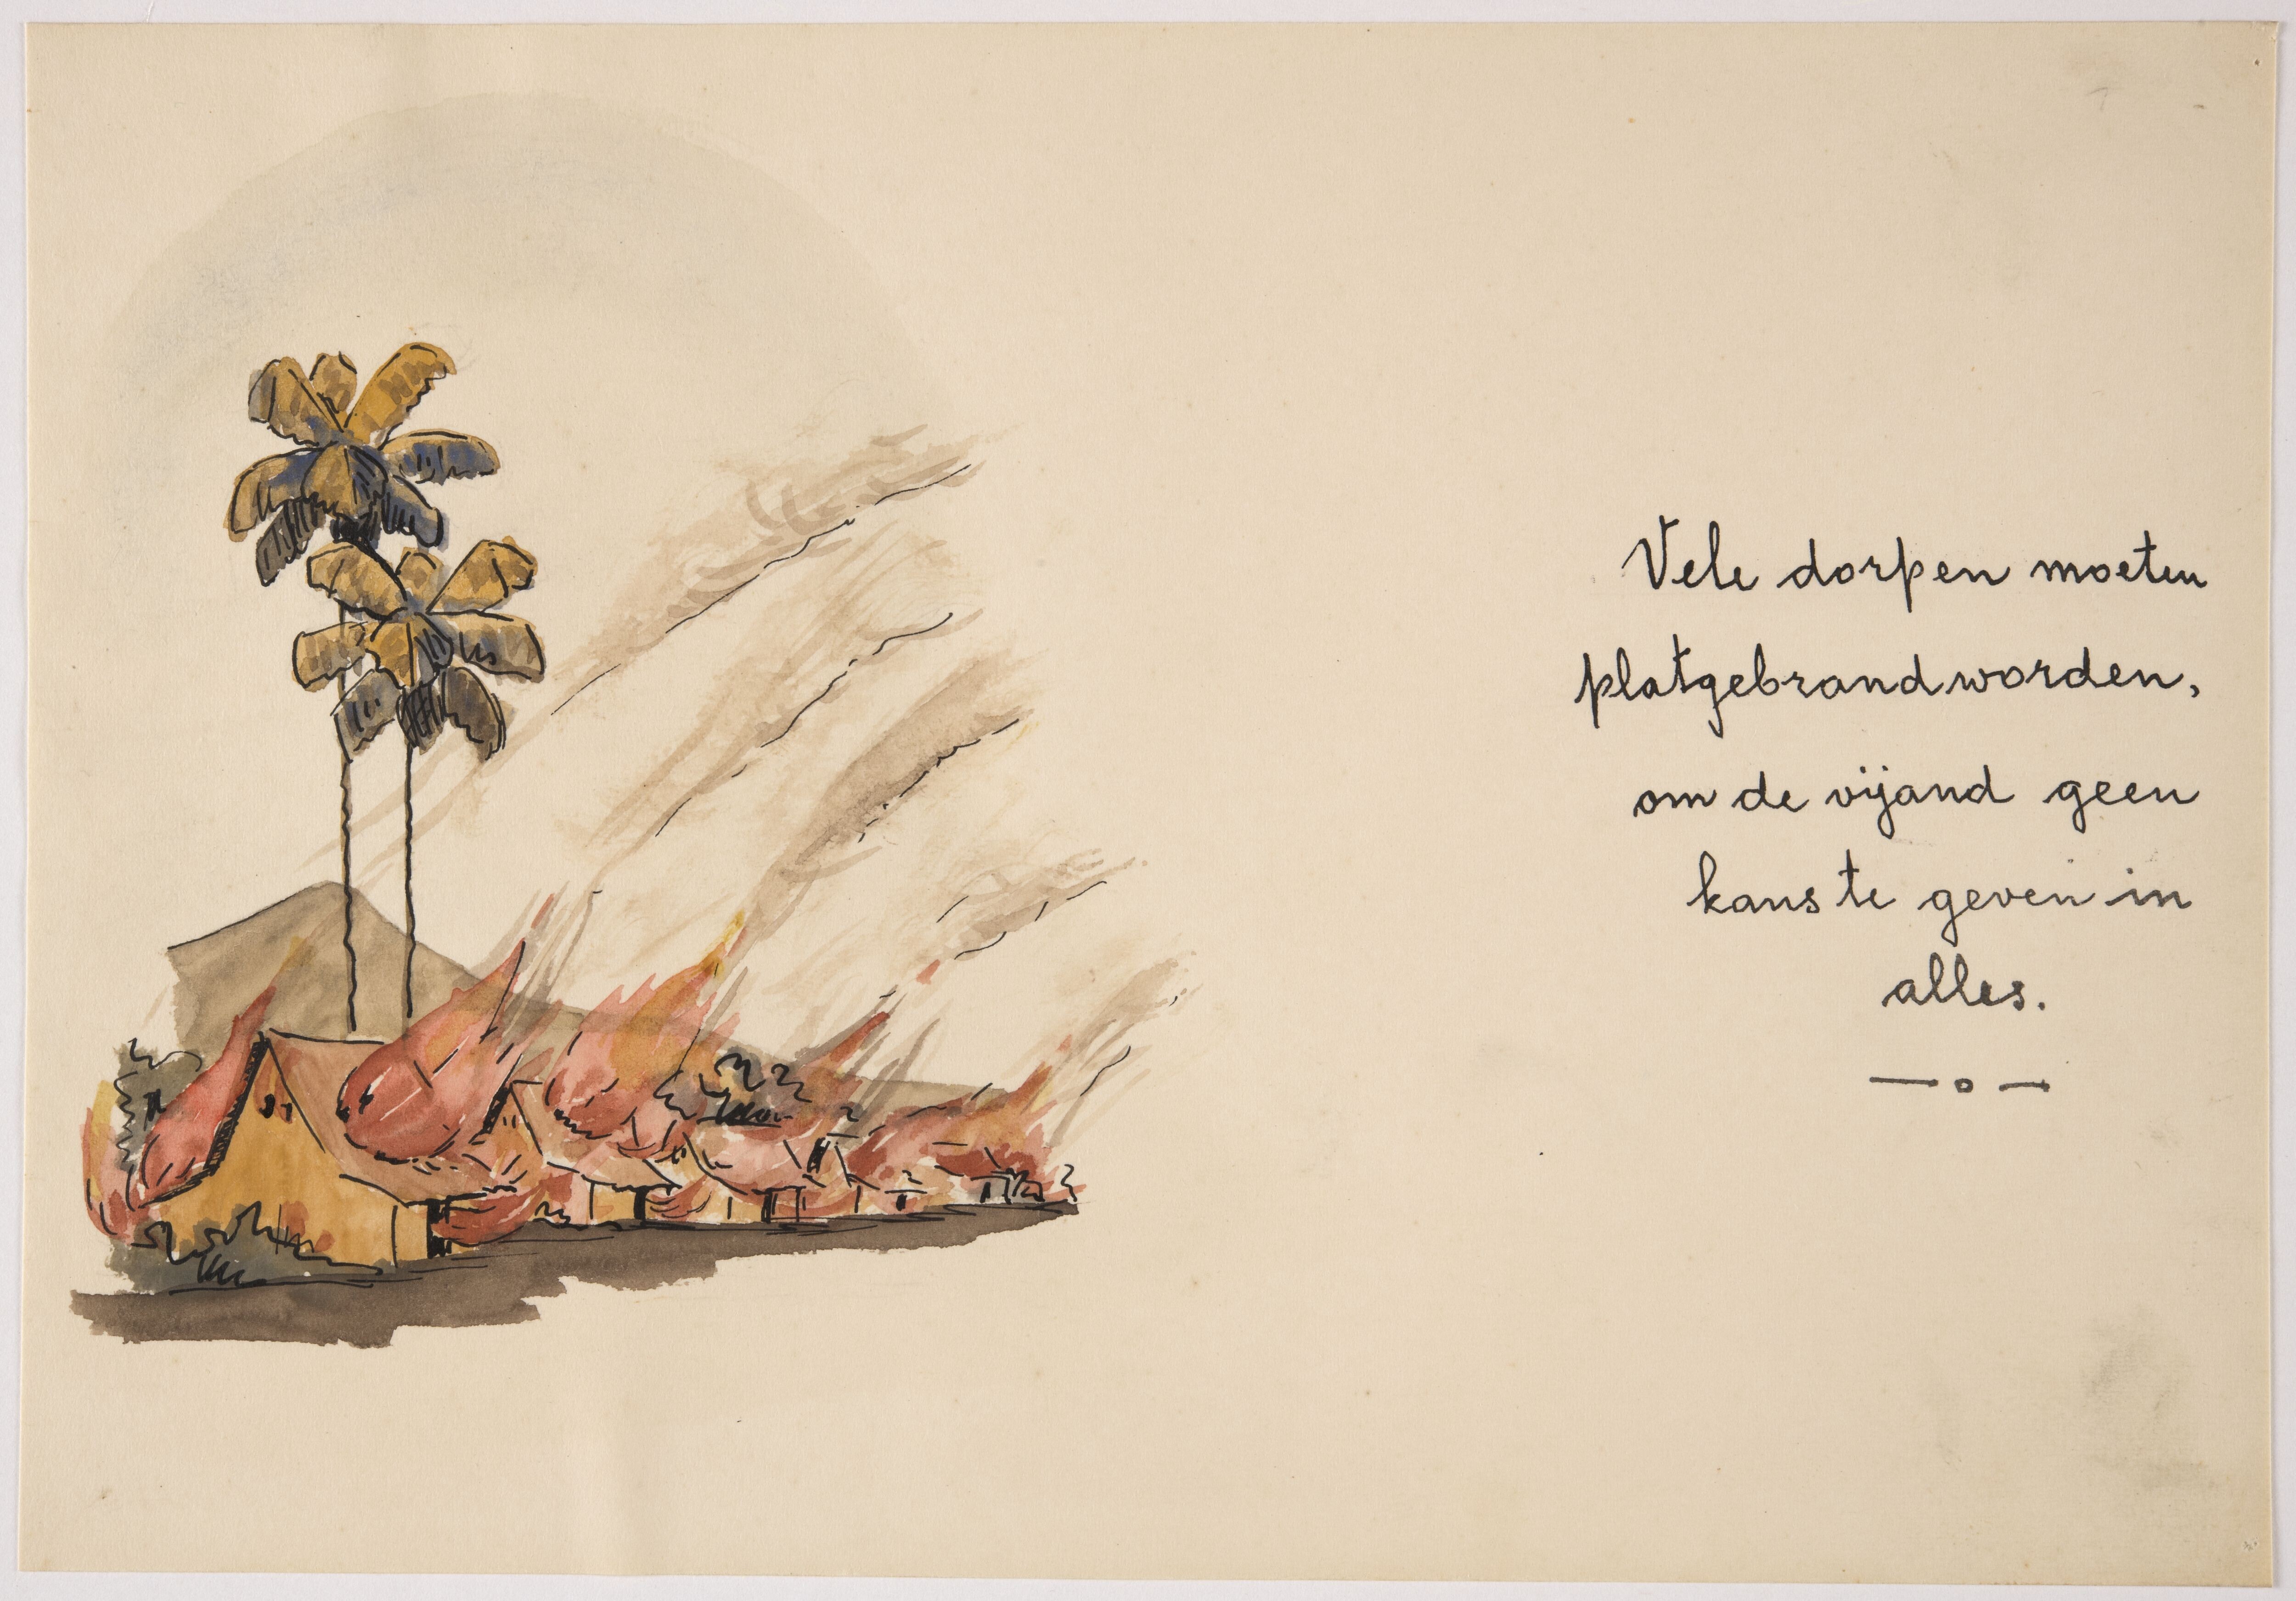 Vele dorpen moeten
platgebrand worden,
om de vijand geen
kans te geven in
alles.